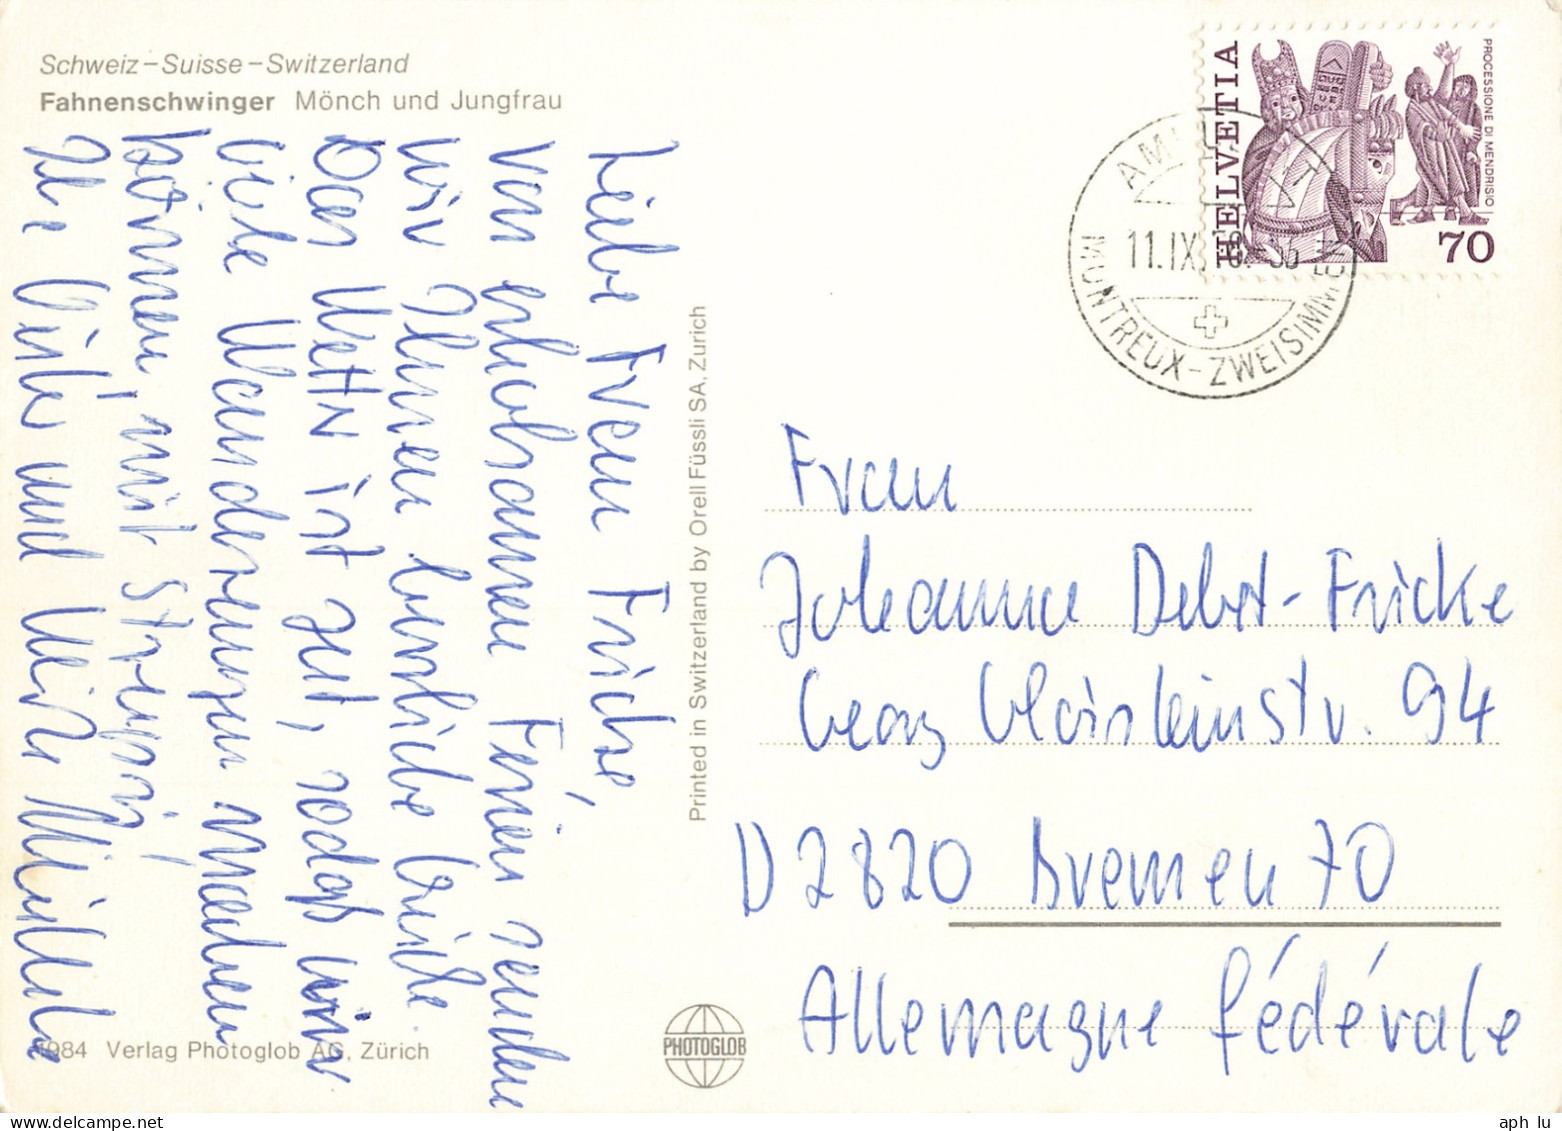 Schweiz–Suisse–Switzerland
Fahnenschwinger Mönch und Jungfrau
Liebe Frau Fricke,
von erholsamen Ferien senden
wir Ihnen herzliche Grüße.
Das Wetter ist gut, sodaß wir
viele Wanderungen machen
können, mit
Ihre und
1984 Verlag Photoglob AG, Zürich
Printed in Switzerland by Orell Füssli SA, Zurich
PHOTOGLOB
HELVETIA
PROCESSIONE DI MENDRISIO
70
11.IX
MONTREUX-ZWEISIMMEN
Frau
Johanna Debet-Fricke
Georg Gleisteinstr. 94
D 2820 Bremen 70
Allemagne fédérale
aph lu